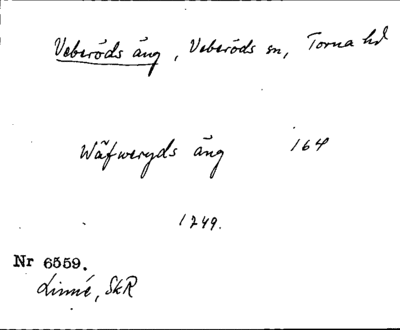 Veberöds äng, Veberöds sn, Torna hd
Wäfweryds äng 164
1749.
Nr 6559.
Linné, SkR